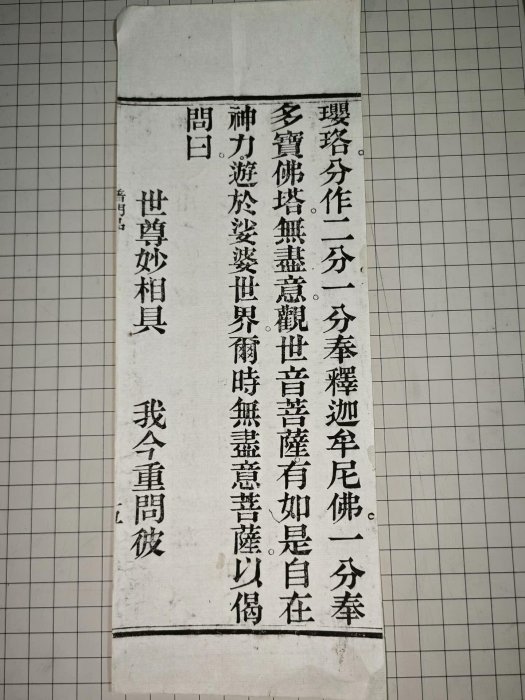 瓔珞分作二分一分奉釋迦牟尼佛。一分奉
多寶佛塔。無盡意。觀世音菩薩。有如是自在
神力。遊於娑婆世界。爾時無盡意菩薩。以偈
問曰。
世尊妙相具　我今重問彼
普門品